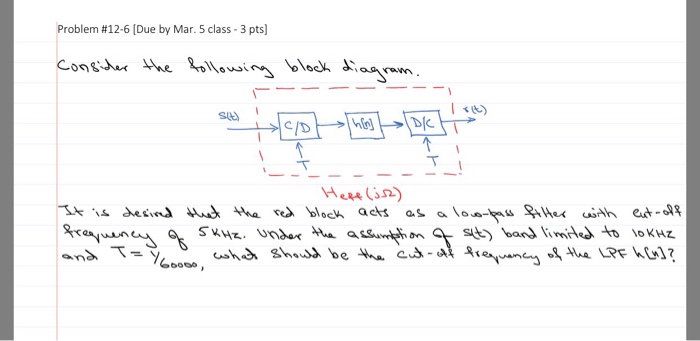 Problem #12-6 [Due by Mar. 5 class - 3 pts]
Consider the following block diagram.
s(t) C/D h[n] D/C r(t)
T T
Heff(jΩ)
It is desired that the red block acts as a low-pass filter with cut-off
frequency of 5 KHz. Under the assumption of s(t) bandlimited to 10 KHz
and T = 1/60000, what should be the cut-off frequency of the LPF h[n]?